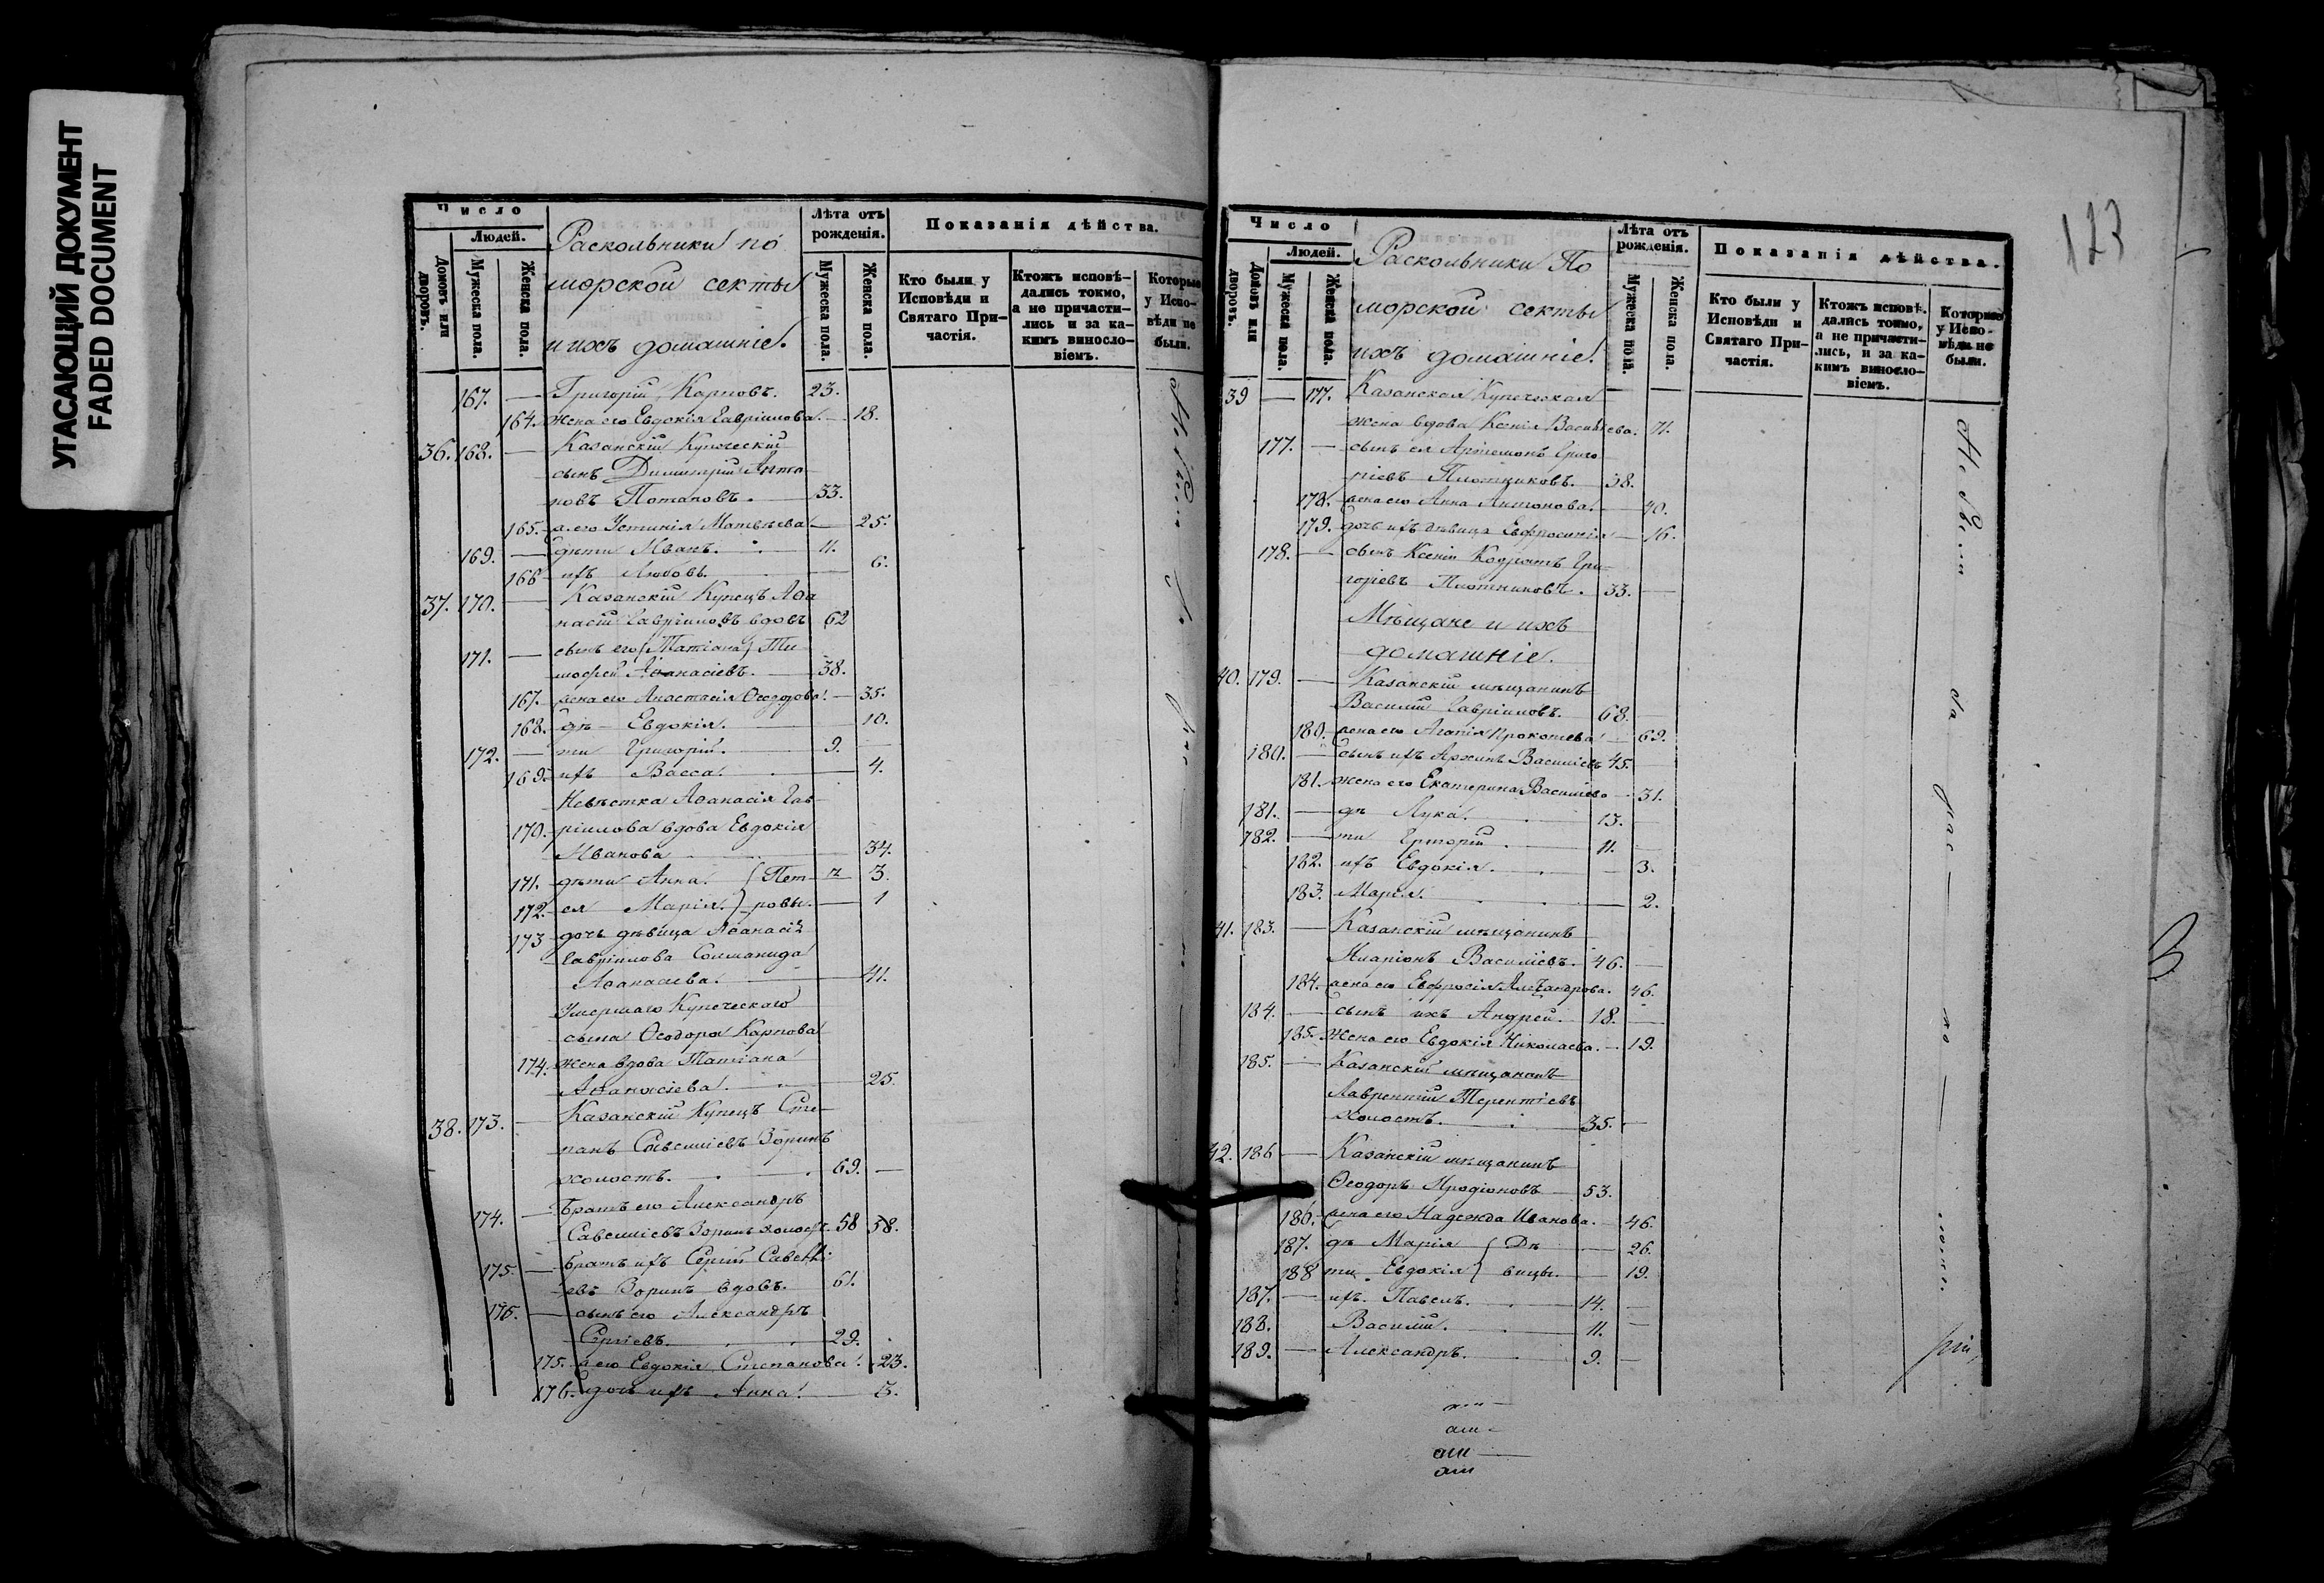 УГАСАЮЩИЙ ДОКУМЕНТ
FADED DOCUMENT
Число
Людей.
Домовъ или дворовъ.
Мужеска пола.
Женска пола.
Раскольники по
морской секты
и ихъ домашніе.
Лѣта отъ рожденія.
Мужеска пола.
Женска пола.
Показанія дѣйства.
Кто были у Исповѣди и Святаго При-
частія.
Ктожъ исповѣ-
дались токмо, а не причасти-
лись и за ка-
кимъ виносло-
віемъ.
Которые у Испо-
вѣди не были.
167. — Григорій Карповъ. 23.
164. жена его Евдокія Гавріилова. — 18.
36. 168. — Казанскій Купеческій
сынъ Димитрій Анто
новъ Потаповъ. 33.
165. ж. его Устинія Матвѣева — 25.
169. — дѣти Иванъ. 11.
166 ихъ Любовь. — 6.
37. 170. — Казанскій Купецъ Аѳа
насій Гавріиловъ вдовъ 62
171. — сынъ его (Татіана) Ти
моѳей Аѳанасіевъ. 38.
167. жена его Анастасія Ѳеодорова. — 35.
168. дѣ — Евдокія. 10.
172. — ти Григорій. 9. —
169. ихъ Васса. 4.
Невѣстка Аѳанасія Гав-
170. ріилова вдова Евдокія
Иванова 34.
171. дѣти Анна. { Пет- 3.
172. ея Марія. } ровы. — 1
173 дочь дѣвица Аѳанасія
Гавріилова Соломанида
Аѳанасіева. 41.
Умершаго Купеческаго
сына Ѳеодора Карпова
174. жена вдова Татіана
Аѳанасіева. 25.
38. 173. — Казанскій Купецъ Сте-
панъ Савеліевъ Зоринъ
холостъ. 69. —
174. — Братъ его Александръ
Савеліевъ Зоринъ холост. 58 38.
175. — Братъ ихъ Сергій Савелі-
евъ Зоринъ вдовъ. 61.
176. — сынъ его Александръ
Сергіевъ. 29.
175. ж его Евдокія Степанова. 23.
176. дочь ихъ Анна. 5.
123
Число
Людей.
Домовъ или дворовъ.
Мужеска пола.
Женска пола.
Раскольники По
морской секты
ихъ домашніе.
Лѣта отъ рожденія.
Мужеска пола.
Женска пола.
Показанія дѣйства.
Кто были у Исповѣди и Святаго При-
частія.
Ктожъ исповѣ-
дались токмо, а не причасти-
лись, и за ка-
кимъ виносло-
віемъ.
Которые у Испо-
вѣди не были.
39 — 177. Казанская Купеческая
жена вдова Ксенія Васильева. 71.
177. — сынъ ея Артемонъ Григо
ріевъ Плотниковъ. 38.
178. жена его Анна Антонова. — 40.
179. дочь ихъ дѣвица Евфросинія — 16.
178. — сынъ Ксеніи Кодратъ Гри-
горіевъ Плотниковъ. 33. —
Мѣщане и ихъ
домашніе.
40. 179. — Казанскій мѣщанинъ
Василій Гавріиловъ. 68. —
180. жена его Агапія Прокопіева — 69.
180. — сынъ ихъ Архипъ Василіевъ 45. —
181. жена его Екатерина Василіева — 31.
181. — дѣ Лука. 13. —
182. — ти Григорій. 11. —
182. ихъ Евдокія. — 3.
183. Марія. — 2.
41. 183. — Казанскій мѣщанинъ
Иларіонъ Василіевъ. 46. —
184. жена его Евфросинія Александрова. 46.
184. — сынъ ихъ Андрей. 18. —
185. Жена его Евдокія Николаева. — 19.
185. — Казанскій мѣщанинъ
Лаврентій Терентіевъ
холостъ. 35. —
42. 186 — Казанскій мѣщанинъ
Ѳеодоръ Иродіоновъ 53.
186. жена его Надежда Иванова. — 46.
187. дѣ Марія { Дѣ — 26.
188 ти Евдокія } вицы. — 19.
187. — ихъ. Павелъ. 14. —
188. Василій. 11. —
189. — Александръ. 9. —